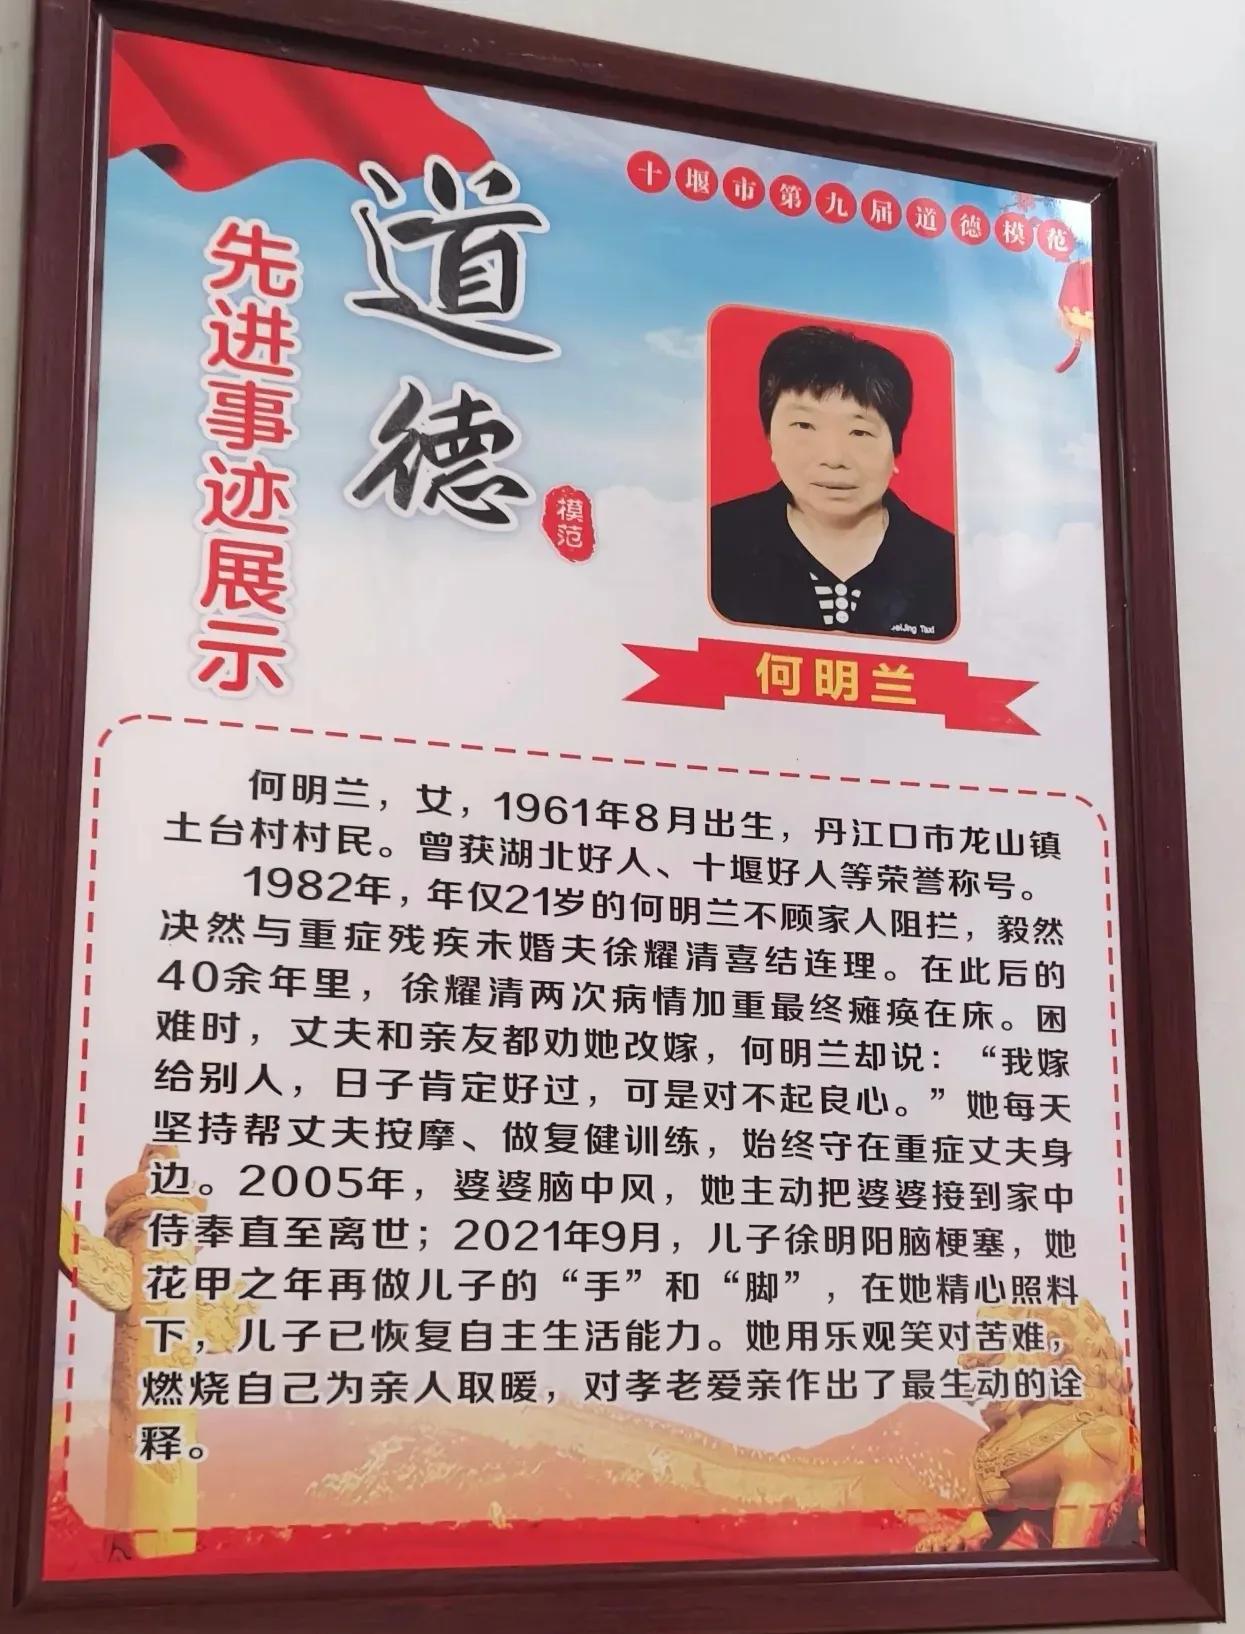 十堰市第九届道德模范
道德
模范
先进事迹展示
BeiJing Taxi
何明兰
何明兰，女，1961年8月出生，丹江口市龙山镇
土台村村民。曾获湖北好人、十堰好人等荣誉称号。
1982年，年仅21岁的何明兰不顾家人阻拦，毅然
决然与重症残疾未婚夫徐耀清喜结连理。在此后的
40余年里，徐耀清两次病情加重最终瘫痪在床。困
难时，丈夫和亲友都劝她改嫁，何明兰却说：“我嫁
给别人，日子肯定好过，可是对不起良心。”她每天
坚持帮丈夫按摩、做复健训练，始终守在重症丈夫身
边。2005年，婆婆脑中风，她主动把婆婆接到家中
侍奉直至离世；2021年9月，儿子徐明阳脑梗塞，她
花甲之年再做儿子的“手”和“脚”，在她精心照料
下，儿子已恢复自主生活能力。她用乐观笑对苦难，
燃烧自己为亲人取暖，对孝老爱亲作出了最生动的诠
释。